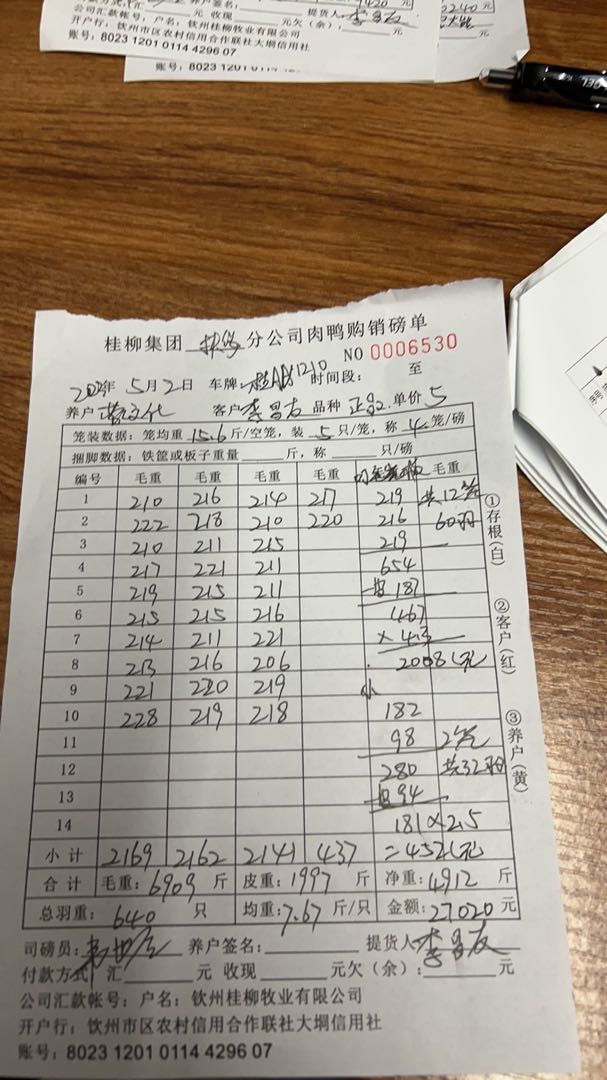 元 收现 元欠(余): 元
公司汇款帐号: 户名: 钦州桂柳牧业有限公司
开户行: 钦州市区农村信用合作联社大垌信用社
账号: 8023 1201 0114 4296 07
账号: 8023 1201 0114 4296 07
桂柳集团 分公司肉鸭购销磅单
NO 0006530
年 5月2日 车牌: 1210 时间段: 至
养户 客户 李昌友 品种 正品 单价 5
笼装数据: 笼均重 15.6 斤/空笼, 装 5 只/笼, 称 4 笼/磅
捆脚数据: 铁筐或板子重量 斤, 称 只/磅
编号 毛重 毛重 毛重 毛重 毛重
1 210 216 214 217 219 共12笼
2 222 218 210 220 216 60羽
3 210 211 215 219
4 217 221 211 654
5 219 215 211 187
6 215 215 216 467
7 214 211 221 × 4.3
8 213 216 206 2008元
9 221 220 219 小
10 228 219 218 182
11 98 2笼
12 280 共32羽
13 94
14 181×2.5
小计 2169 2162 2141 437 =452元
合计 毛重: 6909 斤 皮重: 1997 斤 净重: 4912 斤
总羽重: 640 只 均重: 7.67 斤/只 金额: 27020 元
司磅员: 养户签名: 提货人 李昌友
付款方式 汇 元 收现 元欠(余): 元
公司汇款帐号: 户名: 钦州桂柳牧业有限公司
开户行: 钦州市区农村信用合作联社大垌信用社
账号: 8023 1201 0114 4296 07
①存根(白)
②客户(红)
③养户(黄)